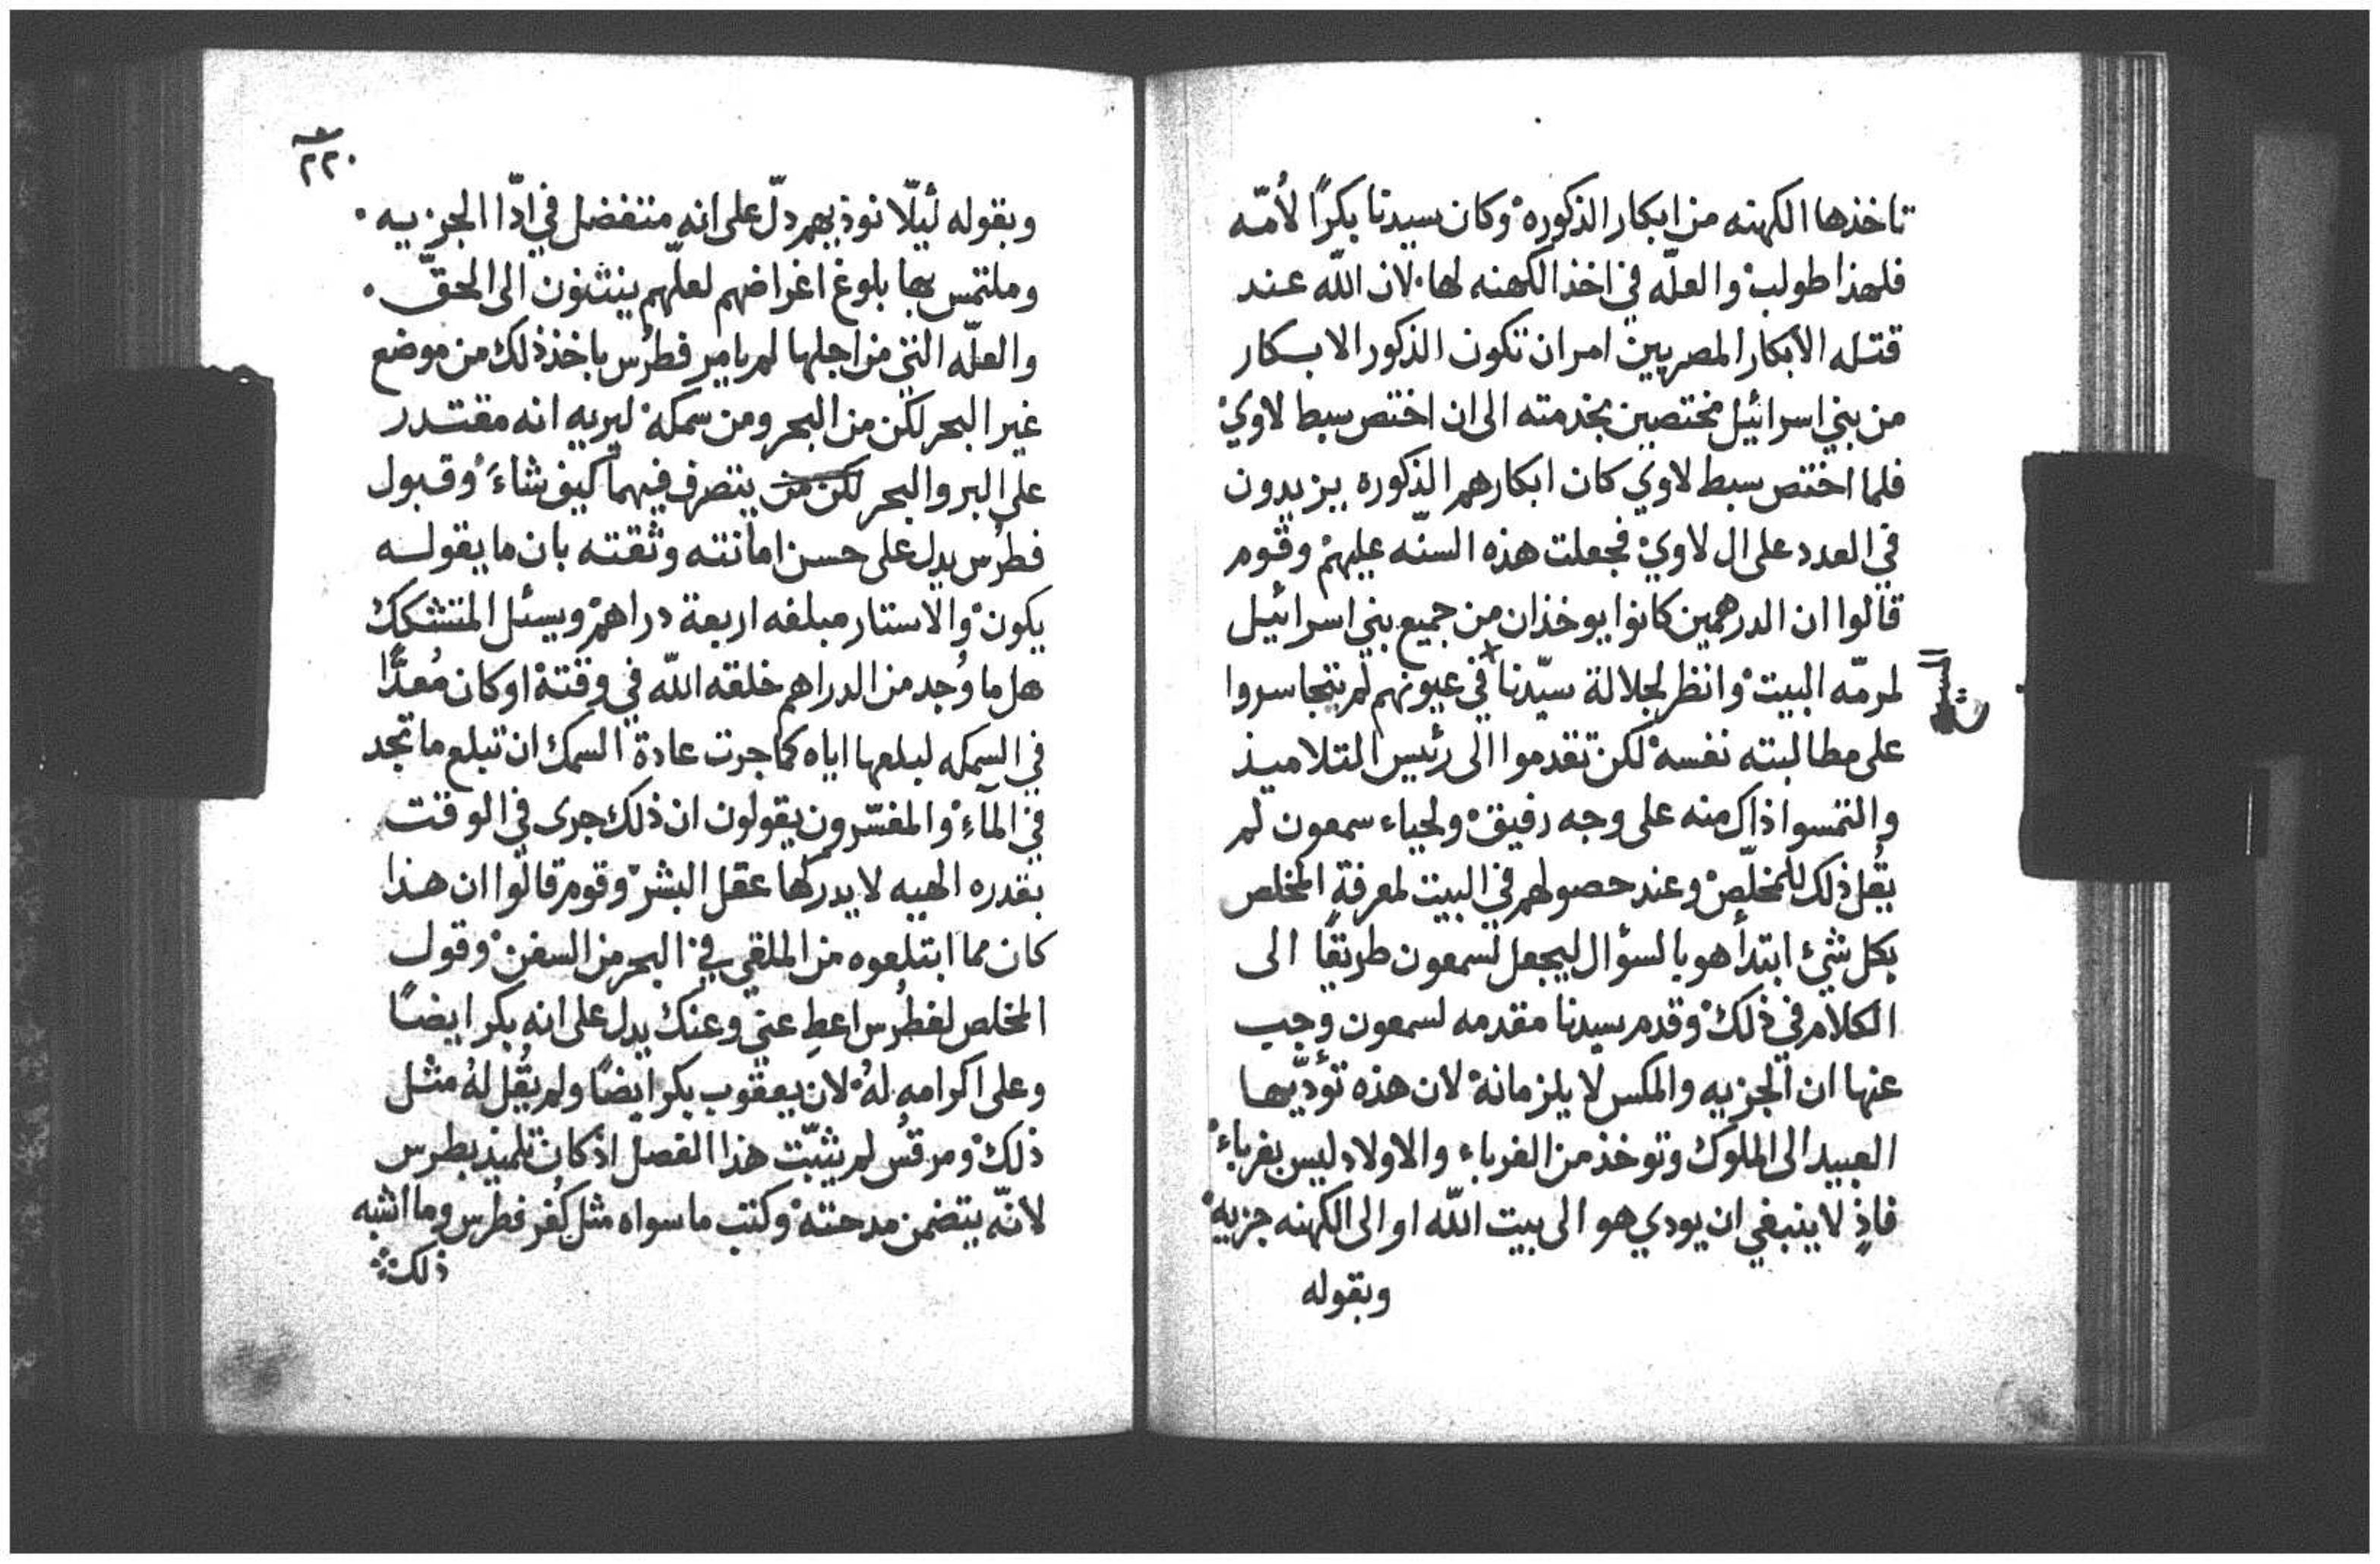 تاخذها الكهنه من ابكار الذكوره وكان سيدنا بكرًا لأمّه
فلهذا طولب والعلّه في اخذ الكهنه لها لان اللّه عند
قتله الابكار المصريين امر ان تكون الذكور الابكار
من بني اسرائيل مختصين بخدمته الى ان اختص سبط لاوي
فلما اختص سبط لاوي كان ابكارهم الذكوره يزيدون
في العدد على ال لاوي فجعلت هذه السنّه عليهم وقوم
قالوا ان الدرهمين كانوا يوخذان من جميع بني اسرائيل
لمرمّه البيت وانظر لجلالة سيّدنا في عيونهم لم يتجاسروا
على مطالبته نفسه لكن تقدموا الى رئيس التلاميذ
والتمسوا ذاك منه على وجه رفيق ولحياء سمعون لم
يقُل ذلك للمخلّص وعند حصولهم في البيت لمعرفةِ المخلص
بكل شئ ابتدأ هو بالسؤال ليجعل لسمعون طريقًا الى
الكلام في ذلك وقدم سيدنا مقدمه لسمعون وجب
عنها ان الجزيه والمكس لا يلزمانه لان هذه تؤدّيها
العبيد الى الملوك وتوخذ من الغرباء والاولاد ليس بغرباء
فاذٍ لا ينبغي ان يودي هو الى بيت اللّه او الى الكهنه جزيه
وبقوله
٢٢٠
وبقوله ليّلا نوذيهم دلّ على انه متفضل في ادّا الجزيه
وملتمس بها بلوغ اغراضهم لعلّهم ينثنون الى الحقّ
والعلّه التي من اجلها لم يامر فطرُس باخذ ذلك من موضع
غير البحر لكن من البحر ومن سمكه ليريه انه مقتدر
على البر والبحر لكن من يتصرف فيهما كيف شاءَ وقبول
فطرُس يدل على حسن امانته وثقته بان ما يقوله
يكون والاستار مبلغه اربعة دراهم ويسئل المتشكك
هل ما وُجد من الدراهم خلقه اللّه في وقته او كان مُعدًّا
في السمكه لبلعها اياه كما جرت عادة السمك ان تبلع ما تجد
في المآء والمفسّرون يقولون ان ذلك جرى في الوقت
بقدره الهيه لا يدركها عقل البشر وقوم قالوا ان هذا
كان مما ابتلعوه من الملقي في البحر من السفن وقول
المخلص لفطرُس اعطِ عني وعنك يدل على انه بكر ايضًا
وعلى اكرامه لهُ لان يعقوب بكر ايضًا ولم يقُل لهُ مثل
ذلك ومرقُس لم يثبّت هذا الفصل اذ كان تلميذ بطرس
لانّه يتضمن مدحته وكتب ما سواه مثل كُفر فطرس وما اشبه
ذلك